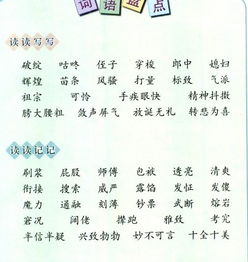 词语盘点
读读写写
破绽 咕咚 侄子 穿梭 郎中 媳妇
辉煌 苗条 风骚 打量 标致 气派
祖宗 可怜 手疾眼快 精神抖擞
膀大腰粗 敛声屏气 放诞无礼 转悲为喜
读读记记
刷浆 屁股 师傅 包袱 透亮 清爽
衔接 搜索 威严 露馅 发怔 发傻
魔力 通融 刻薄 钞票 武断 熔岩
窘况 阔佬 撵跑 雅致 考究
半信半疑 兴致勃勃 妙不可言 十全十美